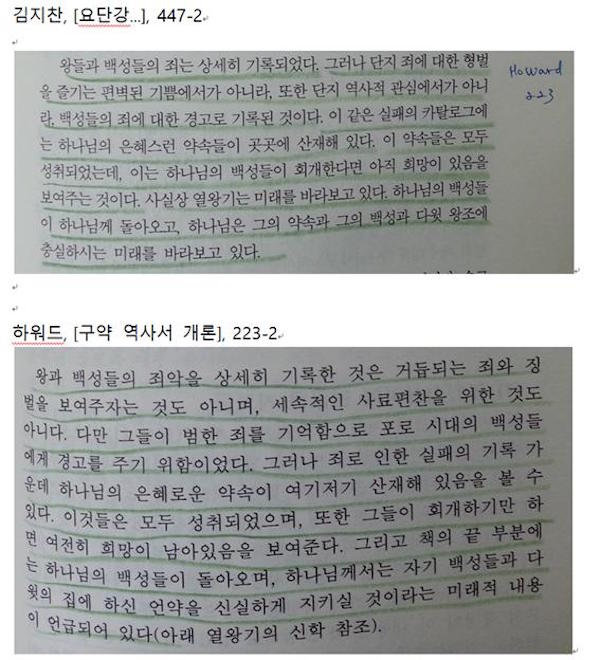 김지찬, [요단강...], 447-2
왕들과 백성들의 죄는 상세히 기록되었다. 그러나 단지 죄에 대한 형벌
을 즐기는 편벽된 기쁨에서가 아니라, 또한 단지 역사적 관심에서가 아니
라, 백성들의 죄에 대한 경고로 기록된 것이다. 이 같은 실패의 카탈로그에
는 하나님의 은혜스런 약속들이 곳곳에 산재해 있다. 이 약속들은 모두
성취되었는데, 이는 하나님의 백성들이 회개한다면 아직 희망이 있음을
보여주는 것이다. 사실상 열왕기는 미래를 바라보고 있다. 하나님의 백성들
이 하나님께 돌아오고, 하나님은 그의 약속과 그의 백성과 다윗 왕조에
충실하시는 미래를 바라보고 있다.
Howard
223
하워드, [구약 역사서 개론], 223-2
왕과 백성들의 죄악을 상세히 기록한 것은 거듭되는 죄와 징
벌을 보여주자는 것도 아니며, 세속적인 사료편찬을 위한 것도
아니다. 다만 그들이 범한 죄를 기억함으로 포로 시대의 백성들
에게 경고를 주기 위함이었다. 그러나 죄로 인한 실패의 기록 가
운데 하나님의 은혜로운 약속이 여기저기 산재해 있음을 볼 수
있다. 이것들은 모두 성취되었으며, 또한 그들이 회개하기만 하
면 여전히 희망이 남아있음을 보여준다. 그리고 책의 끝 부분에
는 하나님의 백성들이 돌아오며, 하나님께서는 자기 백성들과 다
윗의 집에 하신 언약을 신실하게 지키실 것이라는 미래적 내용
이 언급되어 있다(아래 열왕기의 신학 참조).